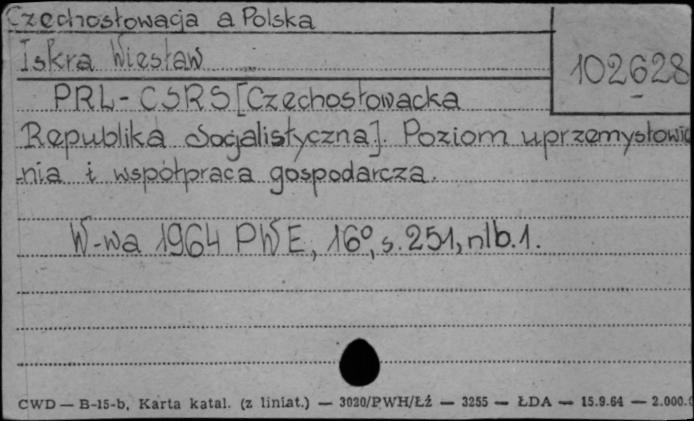 Czechosłowacja a Polska
Iskra Wiesław
102628
PRL-CSRS [Czechosłowacka
Republika Socjalistyczna]. Poziom uprzemysłowie
nia i współpraca gospodarcza.
W-wa 1964 PWE, 16°, s. 251, nlb. 1.
CWD — B-15-b, Karta katal. (z liniat.) — 3020/PWH/Łź — 3255 — ŁDA — 15.9.64 — 2.000.0